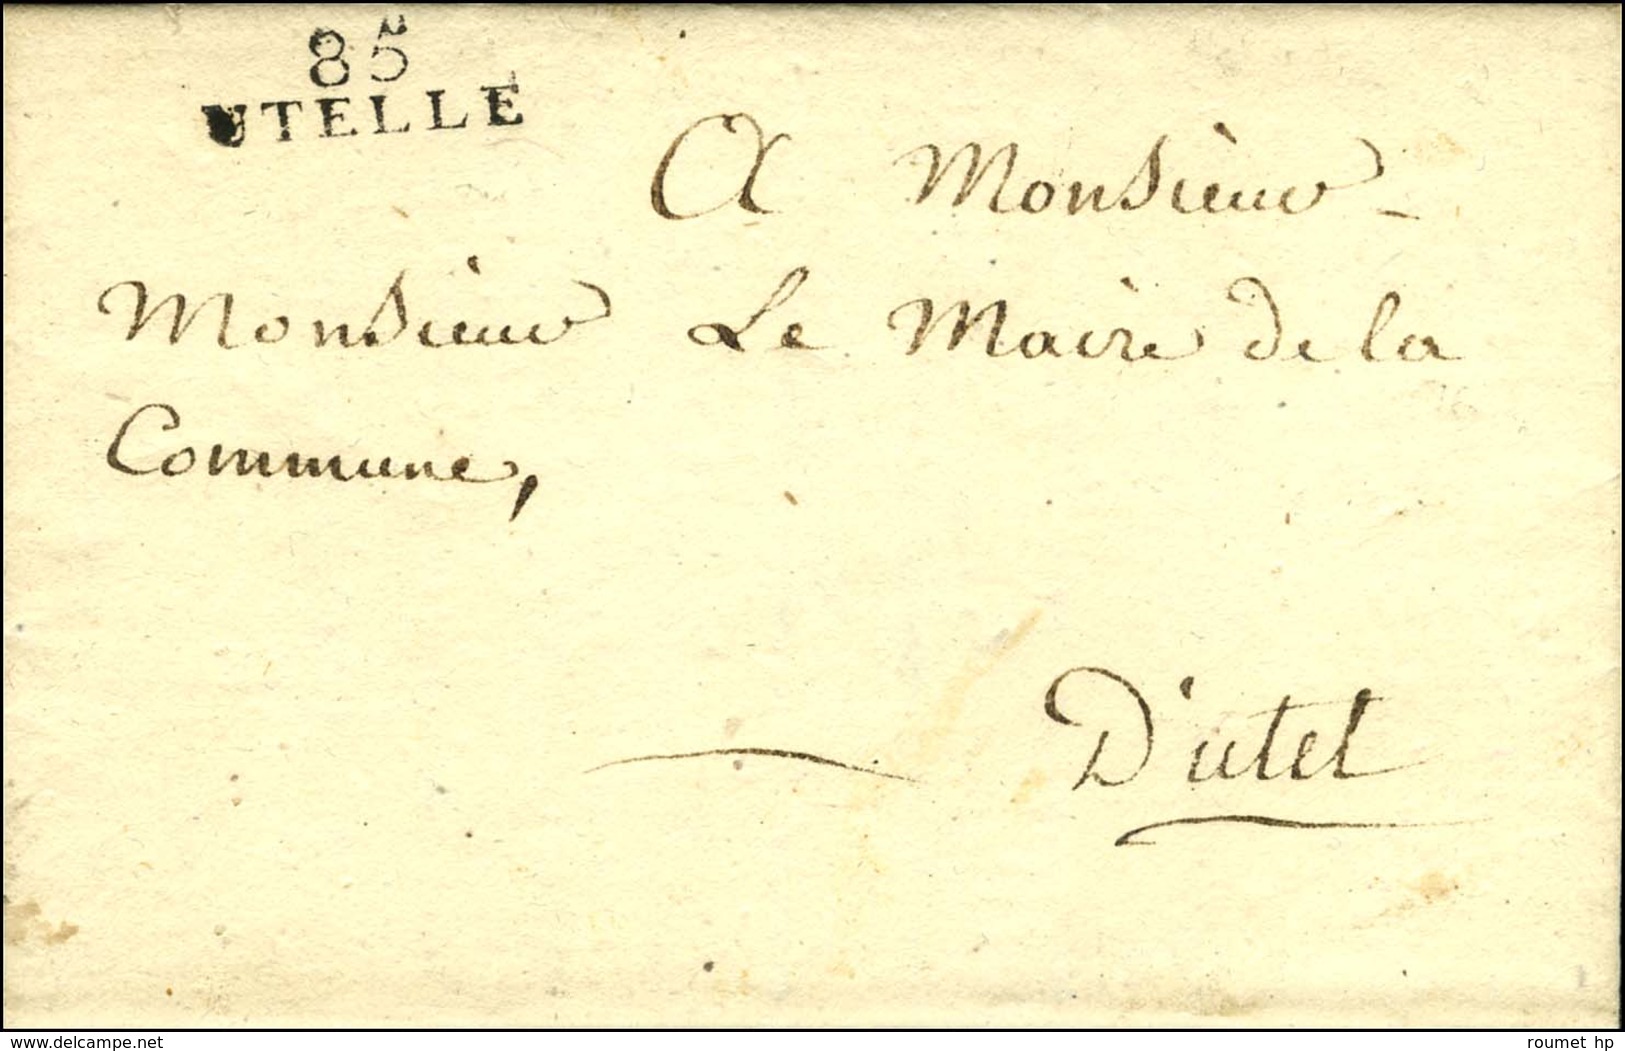 85
UTELLE
A Monsieur -
Monsieur Le Maire de la
Commune,
D'utel
www.delcampe.net
roumet hp